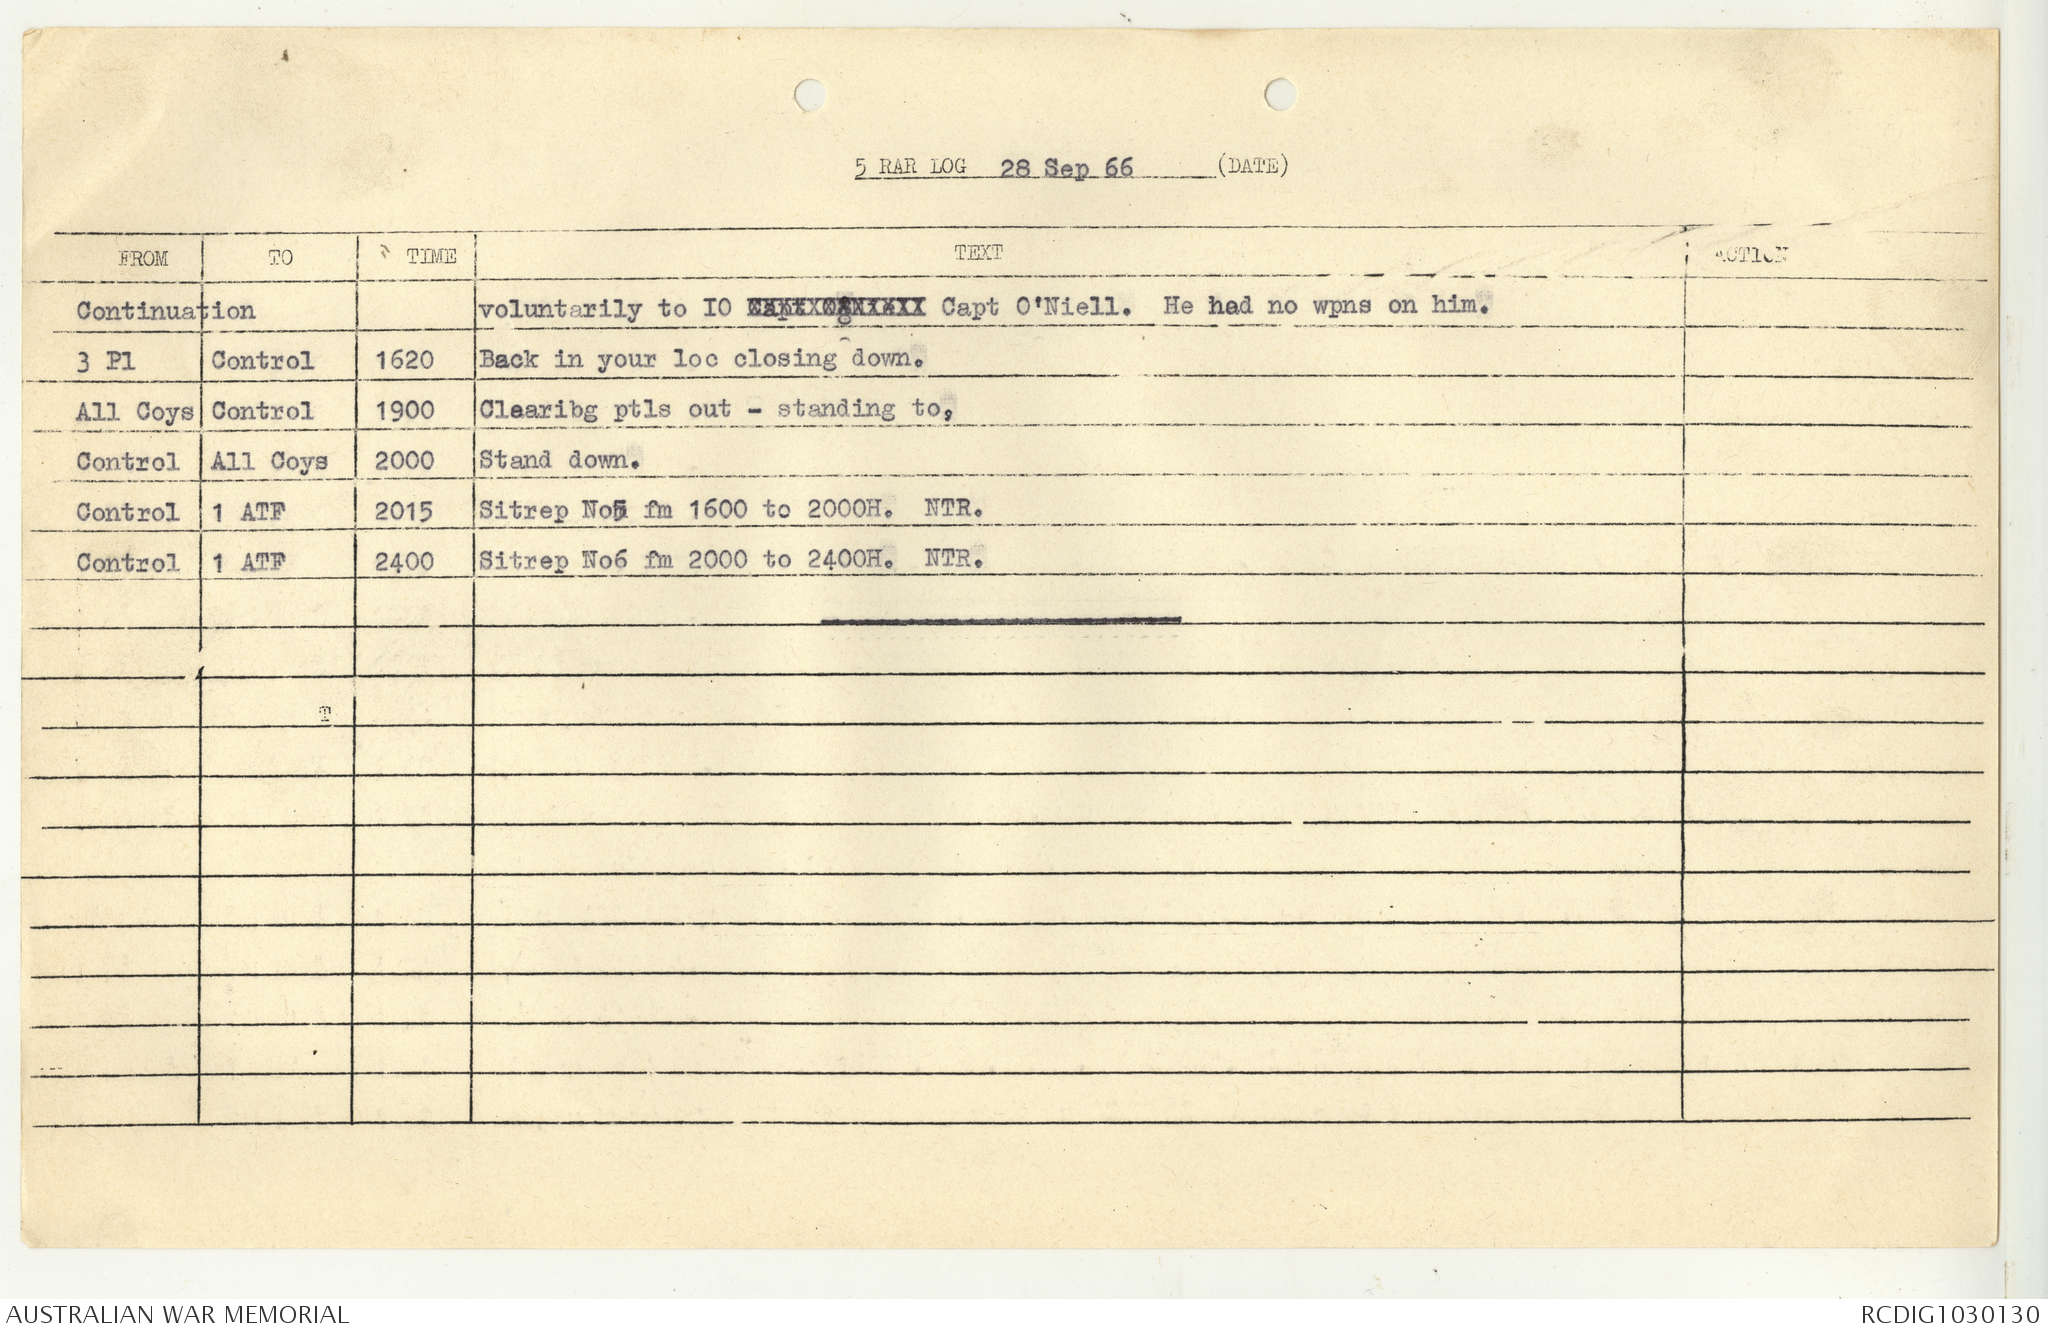 5 RAR LOG 28 Sep 66 (DATE)
FROM TO TIME TEXT ACTION
Continuation voluntarily to IO Capt O'Niell. He had no wpns on him.
3 Pl Control 1620 Back in your loc closing down.
All Coys Control 1900 Clearibg ptls out - standing to,
Control All Coys 2000 Stand down.
Control 1 ATF 2015 Sitrep No5 fm 1600 to 2000H. NTR.
Control 1 ATF 2400 Sitrep No6 fm 2000 to 2400H. NTR.
T
AUSTRALIAN WAR MEMORIAL RCDIG1030130